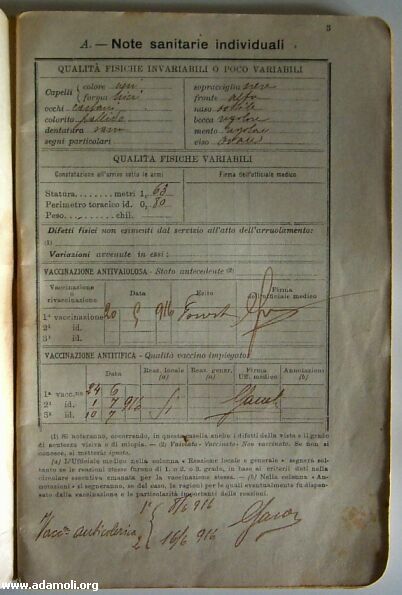 3
A. — Note sanitarie individuali
QUALITÀ FISICHE INVARIABILI O POCO VARIABILI
Capelli { colore neri
forma lisci
occhi castani
colorito pallido
dentatura sana
segni particolari
sopracciglia nere
fronte alta
naso sottile
bocca regolare
mento regolare
viso ovale
QUALITÀ FISICHE VARIABILI
Constatazione all'arrivo sotto le armi
Firma dell'ufficiale medico
Statura........ metri 1, 63
Perimetro toracico id. 0, 80
Peso........ chil.
Difetti fisici non esimenti dal servizio all'atto dell'arruolamento:
(1)
Variazioni avvenute in essi:
VACCINAZIONE ANTIVAIOLOSA - Stato antecedente (2)
Vaccinazione o rivaccinazione
Data
Esito
Firma dell'ufficiale medico
1ª vaccinazione 20 5 916
2ª id.
3ª id.
VACCINAZIONE ANTITIFICA - Qualità vaccino impiegato
Data
Reas. locale (a)
Reas. gener. (a)
Firma Uff. medico
Annotazioni (b)
1ª vacc.ne 24 6
2ª id. 1 7 916
3ª id. 10 7
(1) Si noteranno, occorrendo, in questa casella anche i difetti della vista e il grado
di acutezza visiva e di miopia. — (2) Vaiolato - Vaccinato - Non vaccinato. Se non si
conosce, si metterà: ignota.
(a) L'Ufficiale medico nella colonna « Reazione locale e generale » segnerà soltanto
se le reazioni stesse furono di 1. o 2. o 3. grado, in base ai criteri dati nella
circolare esecutiva emanata per la vaccinazione stessa. — (b) Nella colonna « Annotazioni
» si segneranno, se del caso, le ragioni per le quali eventualmente fu dispensato
dalla vaccinazione e le particolarità importanti delle reazioni.
Vacc.ne anticolerica { 1ª 8/6 916
2ª 16/6 916
www.adamoli.org
www.adamoli.org